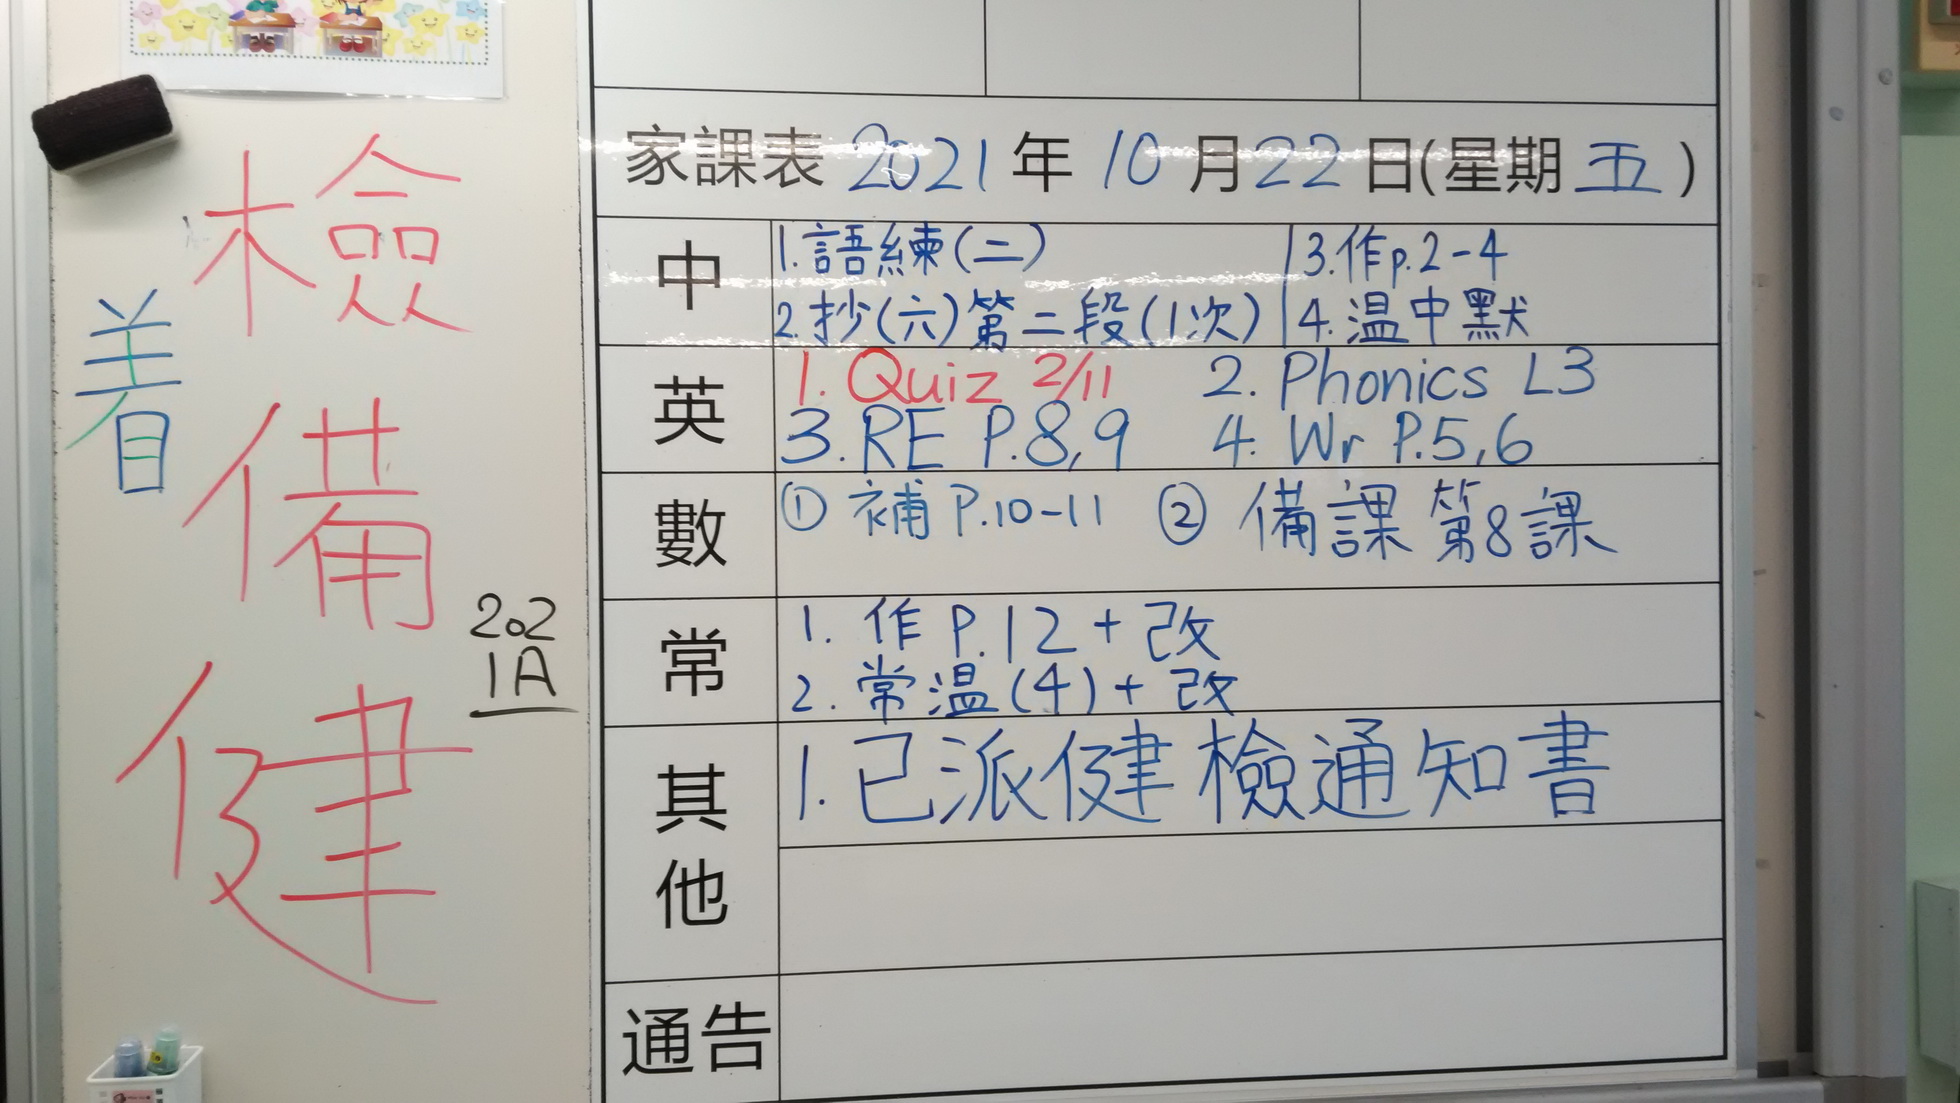 檢備健
着
202
1A
家課表 2021年10月22日(星期五)
中
1.語練(二)
2.抄(六)第二段(1次)
3.作p.2-4
4.温中默
英
1. Quiz 2/11 2. Phonics L3
3. RE P.8,9 4. Wr P.5,6
數
① 補 P.10-11 ② 備課 第8課
常
1. 作 P.12 + 改
2. 常温(4) + 改
其他
1. 已派健檢通知書
通告